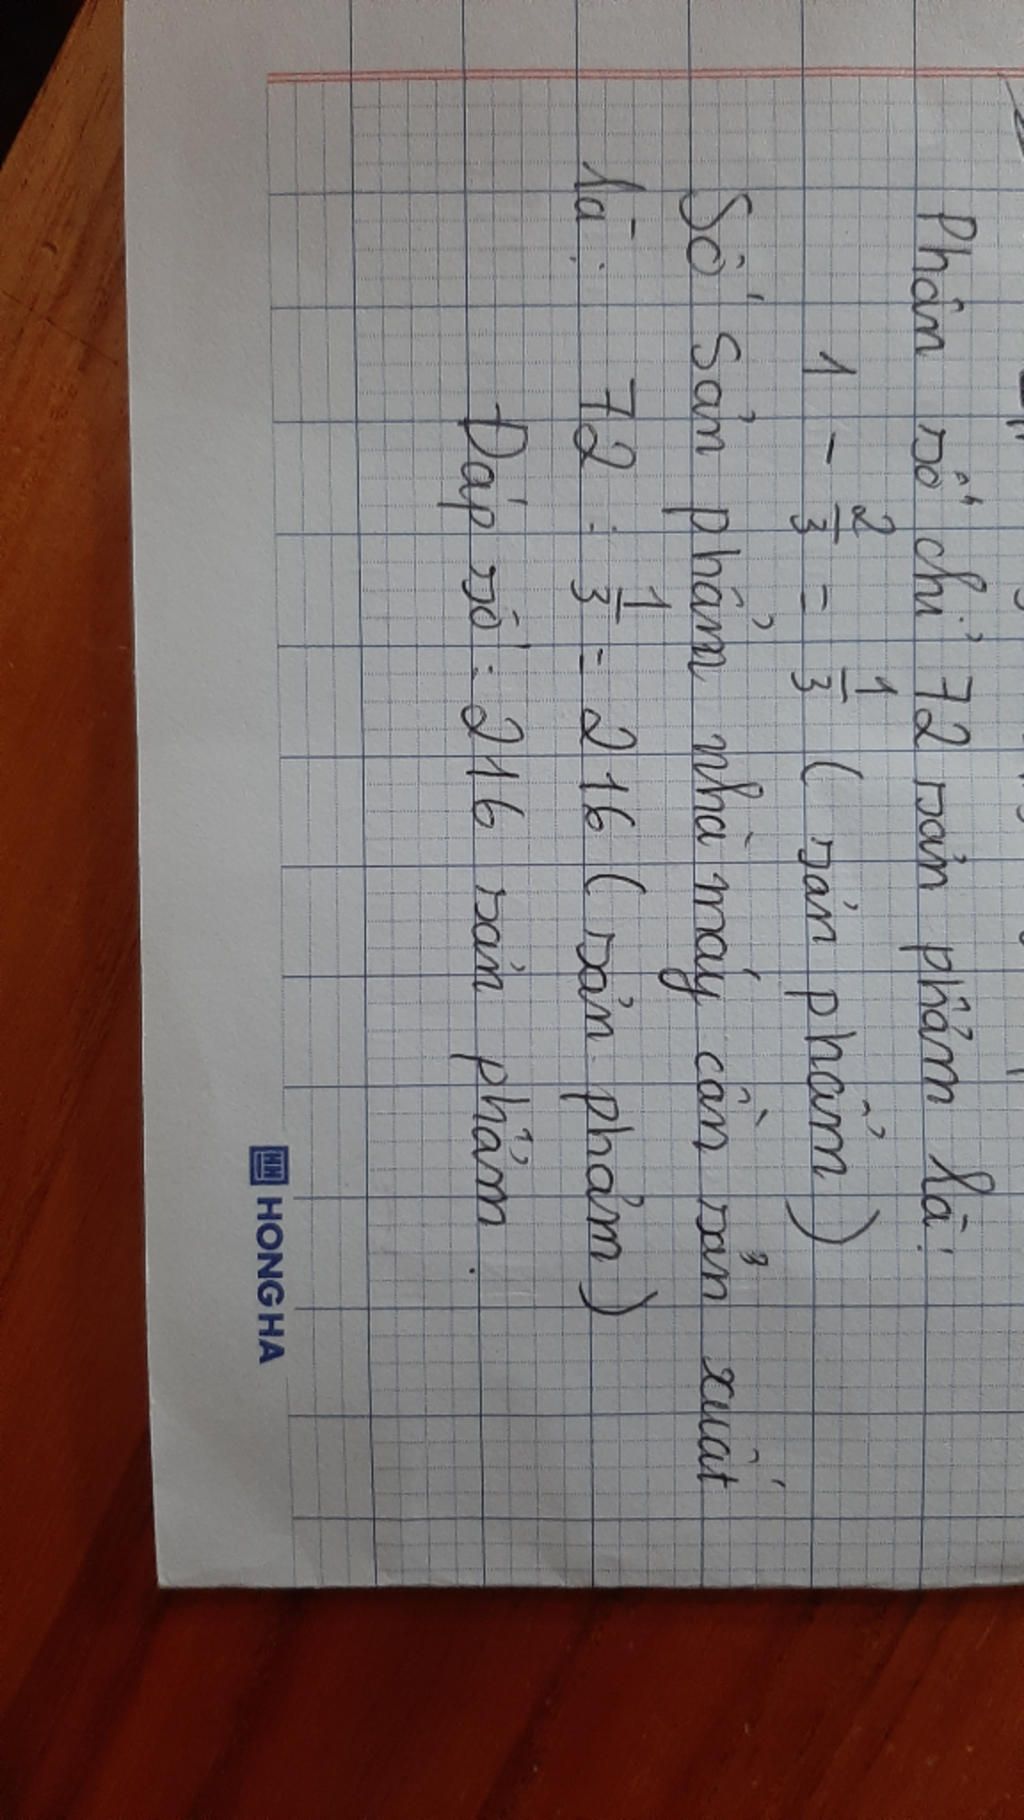 Phân số chỉ 72 sản phẩm là:
1 - 2/3 = 1/3 (sản phẩm)
Số sản phẩm nhà máy cần sản xuất
là: 72 : 1/3 = 216 (sản phẩm)
Đáp số: 216 sản phẩm.
HONG HA